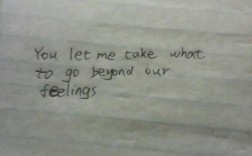 You let me take what
to go beyond our
feelings